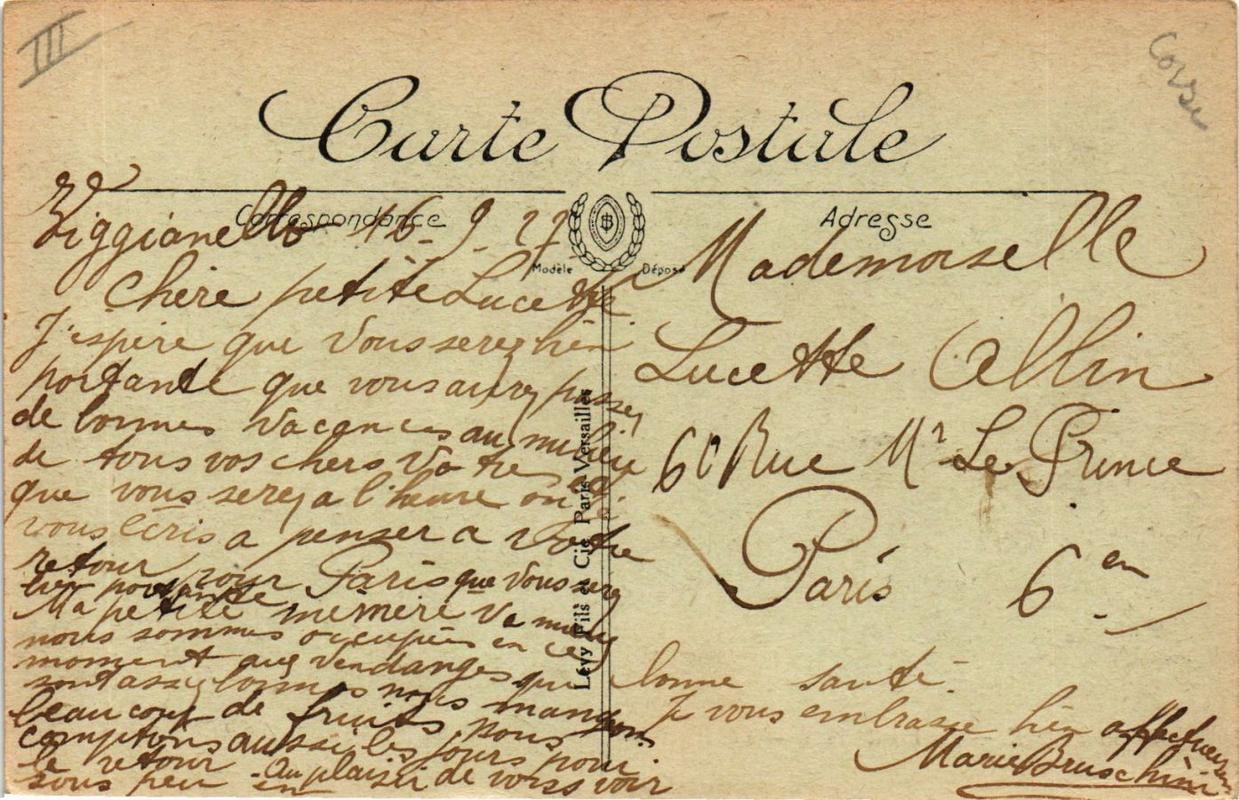 III
Corse
Carte Postale
Correspondance
Adresse
Modèle Déposé
Lévy Fils et Cie Paris-Versailles
Ziggianello 16-9-27
Chère petite Lucette
J'espère que vous serez bien
portante que vous aurez passez
de bonnes vacances au milieu
de tous vos chers Votre
que vous serez a l'heure ou je
vous écris a penser a votre
retour pour Paris que vous serez
bien portante
Ma petite memere va mieux
nous sommes occupées en ce
moment aux vendanges qui
sont assez bonnes nous mangeons
beaucoup de fruits nous
comptons aussi les jours pour
le retour
sous peu au plaisir de vous voir
en bonne santé.
Je vous embrasse bien affectueusement
Marie Bruschini
Mademoiselle
Lucette Collin
60 Rue Mr Le Prince
Paris 6 em